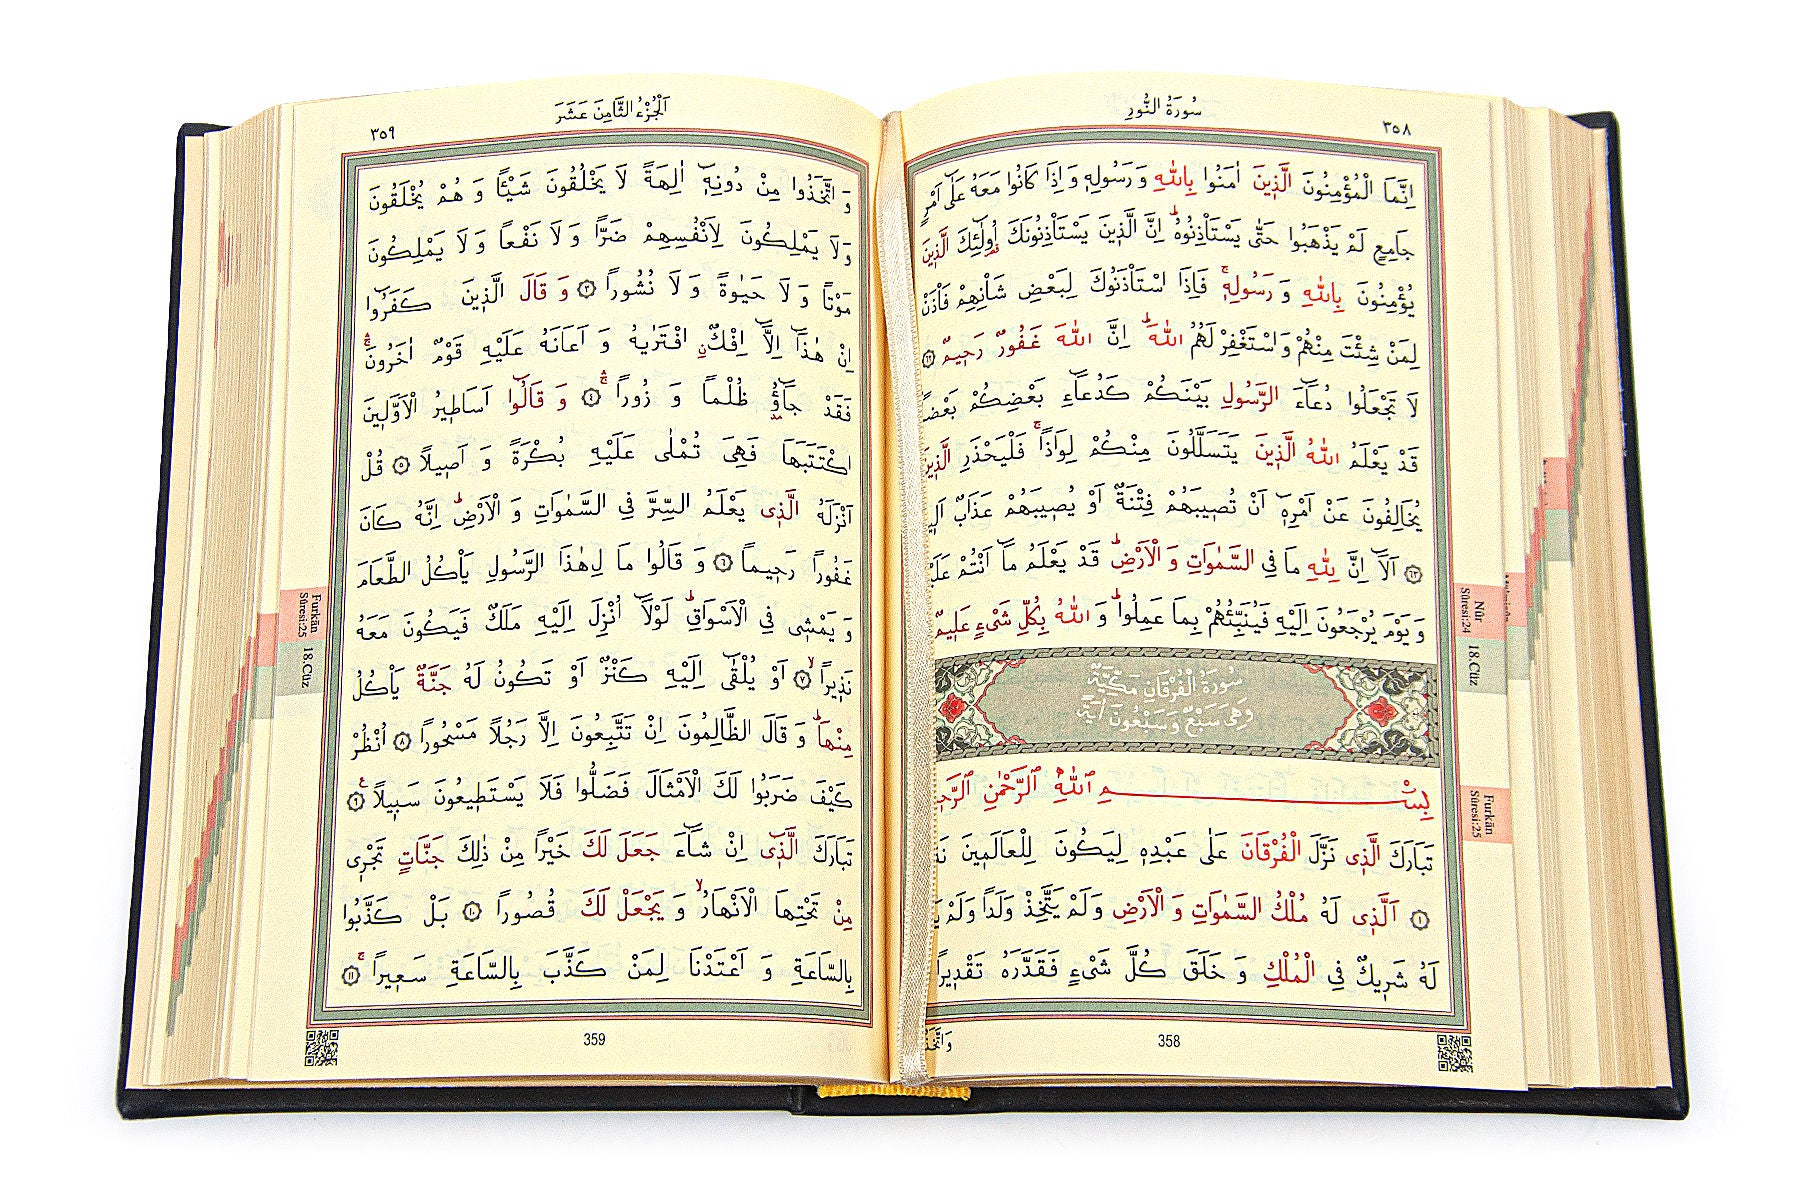 سُورَةُ النُّورِ
٣٥٨
اِنَّمَا الْمُؤْمِنُونَ الَّذ۪ينَ اٰمَنُوا بِاللّٰهِ وَرَسُولِه۪ وَاِذَا كَانُوا مَعَهُ عَلٰٓى اَمْرٍ
جَامِعٍ لَمْ يَذْهَبُوا حَتّٰى يَسْتَأْذِنُوهُۜ اِنَّ الَّذ۪ينَ يَسْتَأْذِنُونَكَ اُو۬لٰٓئِكَ الَّذ۪ينَ
يُؤْمِنُونَ بِاللّٰهِ وَرَسُولِه۪ۚ فَاِذَا اسْتَأْذَنُوكَ لِبَعْضِ شَأْنِهِمْ فَأْذَنْ
لِمَنْ شِئْتَ مِنْهُمْ وَاسْتَغْفِرْ لَهُمُ اللّٰهَۜ اِنَّ اللّٰهَ غَفُورٌ رَح۪يمٌ ﴿٦٢﴾
لَا تَجْعَلُوا دُعَٓاءَ الرَّسُولِ بَيْنَكُمْ كَدُعَٓاءِ بَعْضِكُمْ بَعْضاًۜ
قَدْ يَعْلَمُ اللّٰهُ الَّذ۪ينَ يَتَسَلَّلُونَ مِنْكُمْ لِوَاذاًۚ فَلْيَحْذَرِ الَّذ۪ينَ
يُخَالِفُونَ عَنْ اَمْرِه۪ٓ اَنْ تُص۪يبَهُمْ فِتْنَةٌ اَوْ يُص۪يبَهُمْ عَذَابٌ
﴿٦٣﴾ اَلَٓا اِنَّ لِلّٰهِ مَا فِي السَّمٰوَاتِ وَالْاَرْضِۜ قَدْ يَعْلَمُ مَٓا اَنْتُمْ
وَيَوْمَ يُرْجَعُونَ اِلَيْهِ فَيُنَبِّئُهُمْ بِمَا عَمِلُواۜ وَاللّٰهُ بِكُلِّ شَيْءٍ عَل۪يمٌ
سُورَةُ الْفُرْقَانِ مَكِّيَّةٌ
وَهِيَ سَبْعٌ وَسَبْعُونَ اٰيَةً
بِسْمِ اللّٰهِ الرَّحْمٰنِ
تَبَارَكَ الَّذ۪ي نَزَّلَ الْفُرْقَانَ عَلٰى عَبْدِه۪ لِيَكُونَ لِلْعَالَم۪ينَ
﴿١﴾ اَلَّذ۪ي لَهُ مُلْكُ السَّمٰوَاتِ وَالْاَرْضِ وَلَمْ يَتَّخِذْ وَلَداً وَلَمْ
لَهُ شَر۪يكٌ فِي الْمُلْكِ وَخَلَقَ كُلَّ شَيْءٍ فَقَدَّرَهُ تَقْد۪يراً
358
Nûr
Sûresi:24
18.Cüz
Furkân
Sûresi:25
اَلْجُزْءُ الثَّامِنَ عَشَرَ
٣٥٩
وَاتَّخَذُوا مِنْ دُونِه۪ٓ اٰلِهَةً لَا يَخْلُقُونَ شَيْـٔاً وَهُمْ يُخْلَقُونَ
وَلَا يَمْلِكُونَ لِاَنْفُسِهِمْ ضَراًّ وَلَا نَفْعاً وَلَا يَمْلِكُونَ
مَوْتاً وَلَا حَيٰوةً وَلَا نُشُوراً ﴿٣﴾ وَقَالَ الَّذ۪ينَ كَفَرُٓوا
اِنْ هٰذَٓا اِلَّٓا اِفْكٌۨ افْتَرٰيهُ وَاَعَانَهُ عَلَيْهِ قَوْمٌ اٰخَرُونَۚۛ
فَقَدْ جَٓاؤُ۫ ظُلْماً وَزُوراًۚۛ ﴿٤﴾ وَقَالُٓوا اَسَاط۪يرُ الْاَوَّل۪ينَ
اكْتَتَبَهَا فَهِيَ تُمْلٰى عَلَيْهِ بُكْرَةً وَاَص۪يلاً ﴿٥﴾ قُلْ
اَنْزَلَهُ الَّذ۪ي يَعْلَمُ السِّرَّ فِي السَّمٰوَاتِ وَالْاَرْضِۜ اِنَّهُ كَانَ
غَفُوراً رَح۪يماً ﴿٦﴾ وَقَالُوا مَا لِ هٰذَا الرَّسُولِ يَأْكُلُ الطَّعَامَ
وَيَمْش۪ي فِي الْاَسْوَاقِۜ لَوْلَٓا اُنْزِلَ اِلَيْهِ مَلَكٌ فَيَكُونَ مَعَهُ
نَذ۪يراًۙ ﴿٧﴾ اَوْ يُلْقٰٓى اِلَيْهِ كَنْزٌ اَوْ تَكُونُ لَهُ جَنَّةٌ يَأْكُلُ
مِنْهَاۜ وَقَالَ الظَّالِمُونَ اِنْ تَتَّبِعُونَ اِلَّا رَجُلاً مَسْحُوراً ﴿٨﴾ اُنْظُرْ
كَيْفَ ضَرَبُوا لَكَ الْاَمْثَالَ فَضَلُّوا فَلَا يَسْتَط۪يعُونَ سَب۪يلاً۟ ﴿٩﴾
تَبَارَكَ الَّذ۪ٓي اِنْ شَٓاءَ جَعَلَ لَكَ خَيْراً مِنْ ذٰلِكَ جَنَّاتٍ تَجْر۪ي
مِنْ تَحْتِهَا الْاَنْهَارُۙ وَيَجْعَلْ لَكَ قُصُوراً ﴿١٠﴾ بَلْ كَذَّبُوا
بِالسَّاعَةِ وَاَعْتَدْنَا لِمَنْ كَذَّبَ بِالسَّاعَةِ سَع۪يراًۚ ﴿١١﴾
359
Furkân
Sûresi:25
18.Cüz